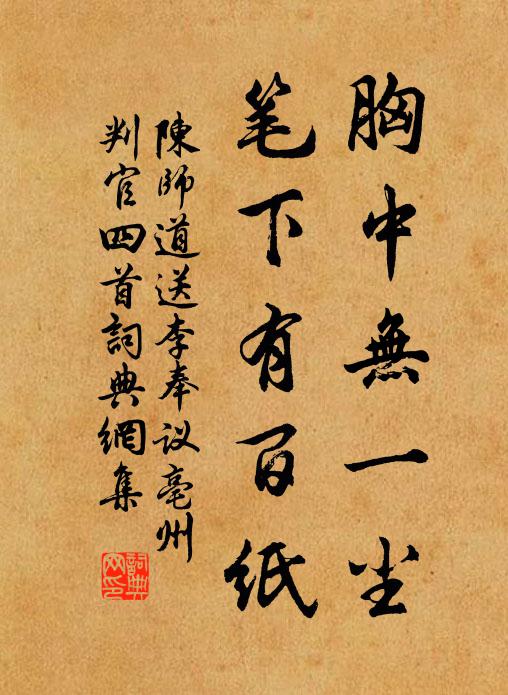 胸中無一尘
笔下有百纸
陳師道送李奉议亳州
判官四首詞典網集
詞典网印